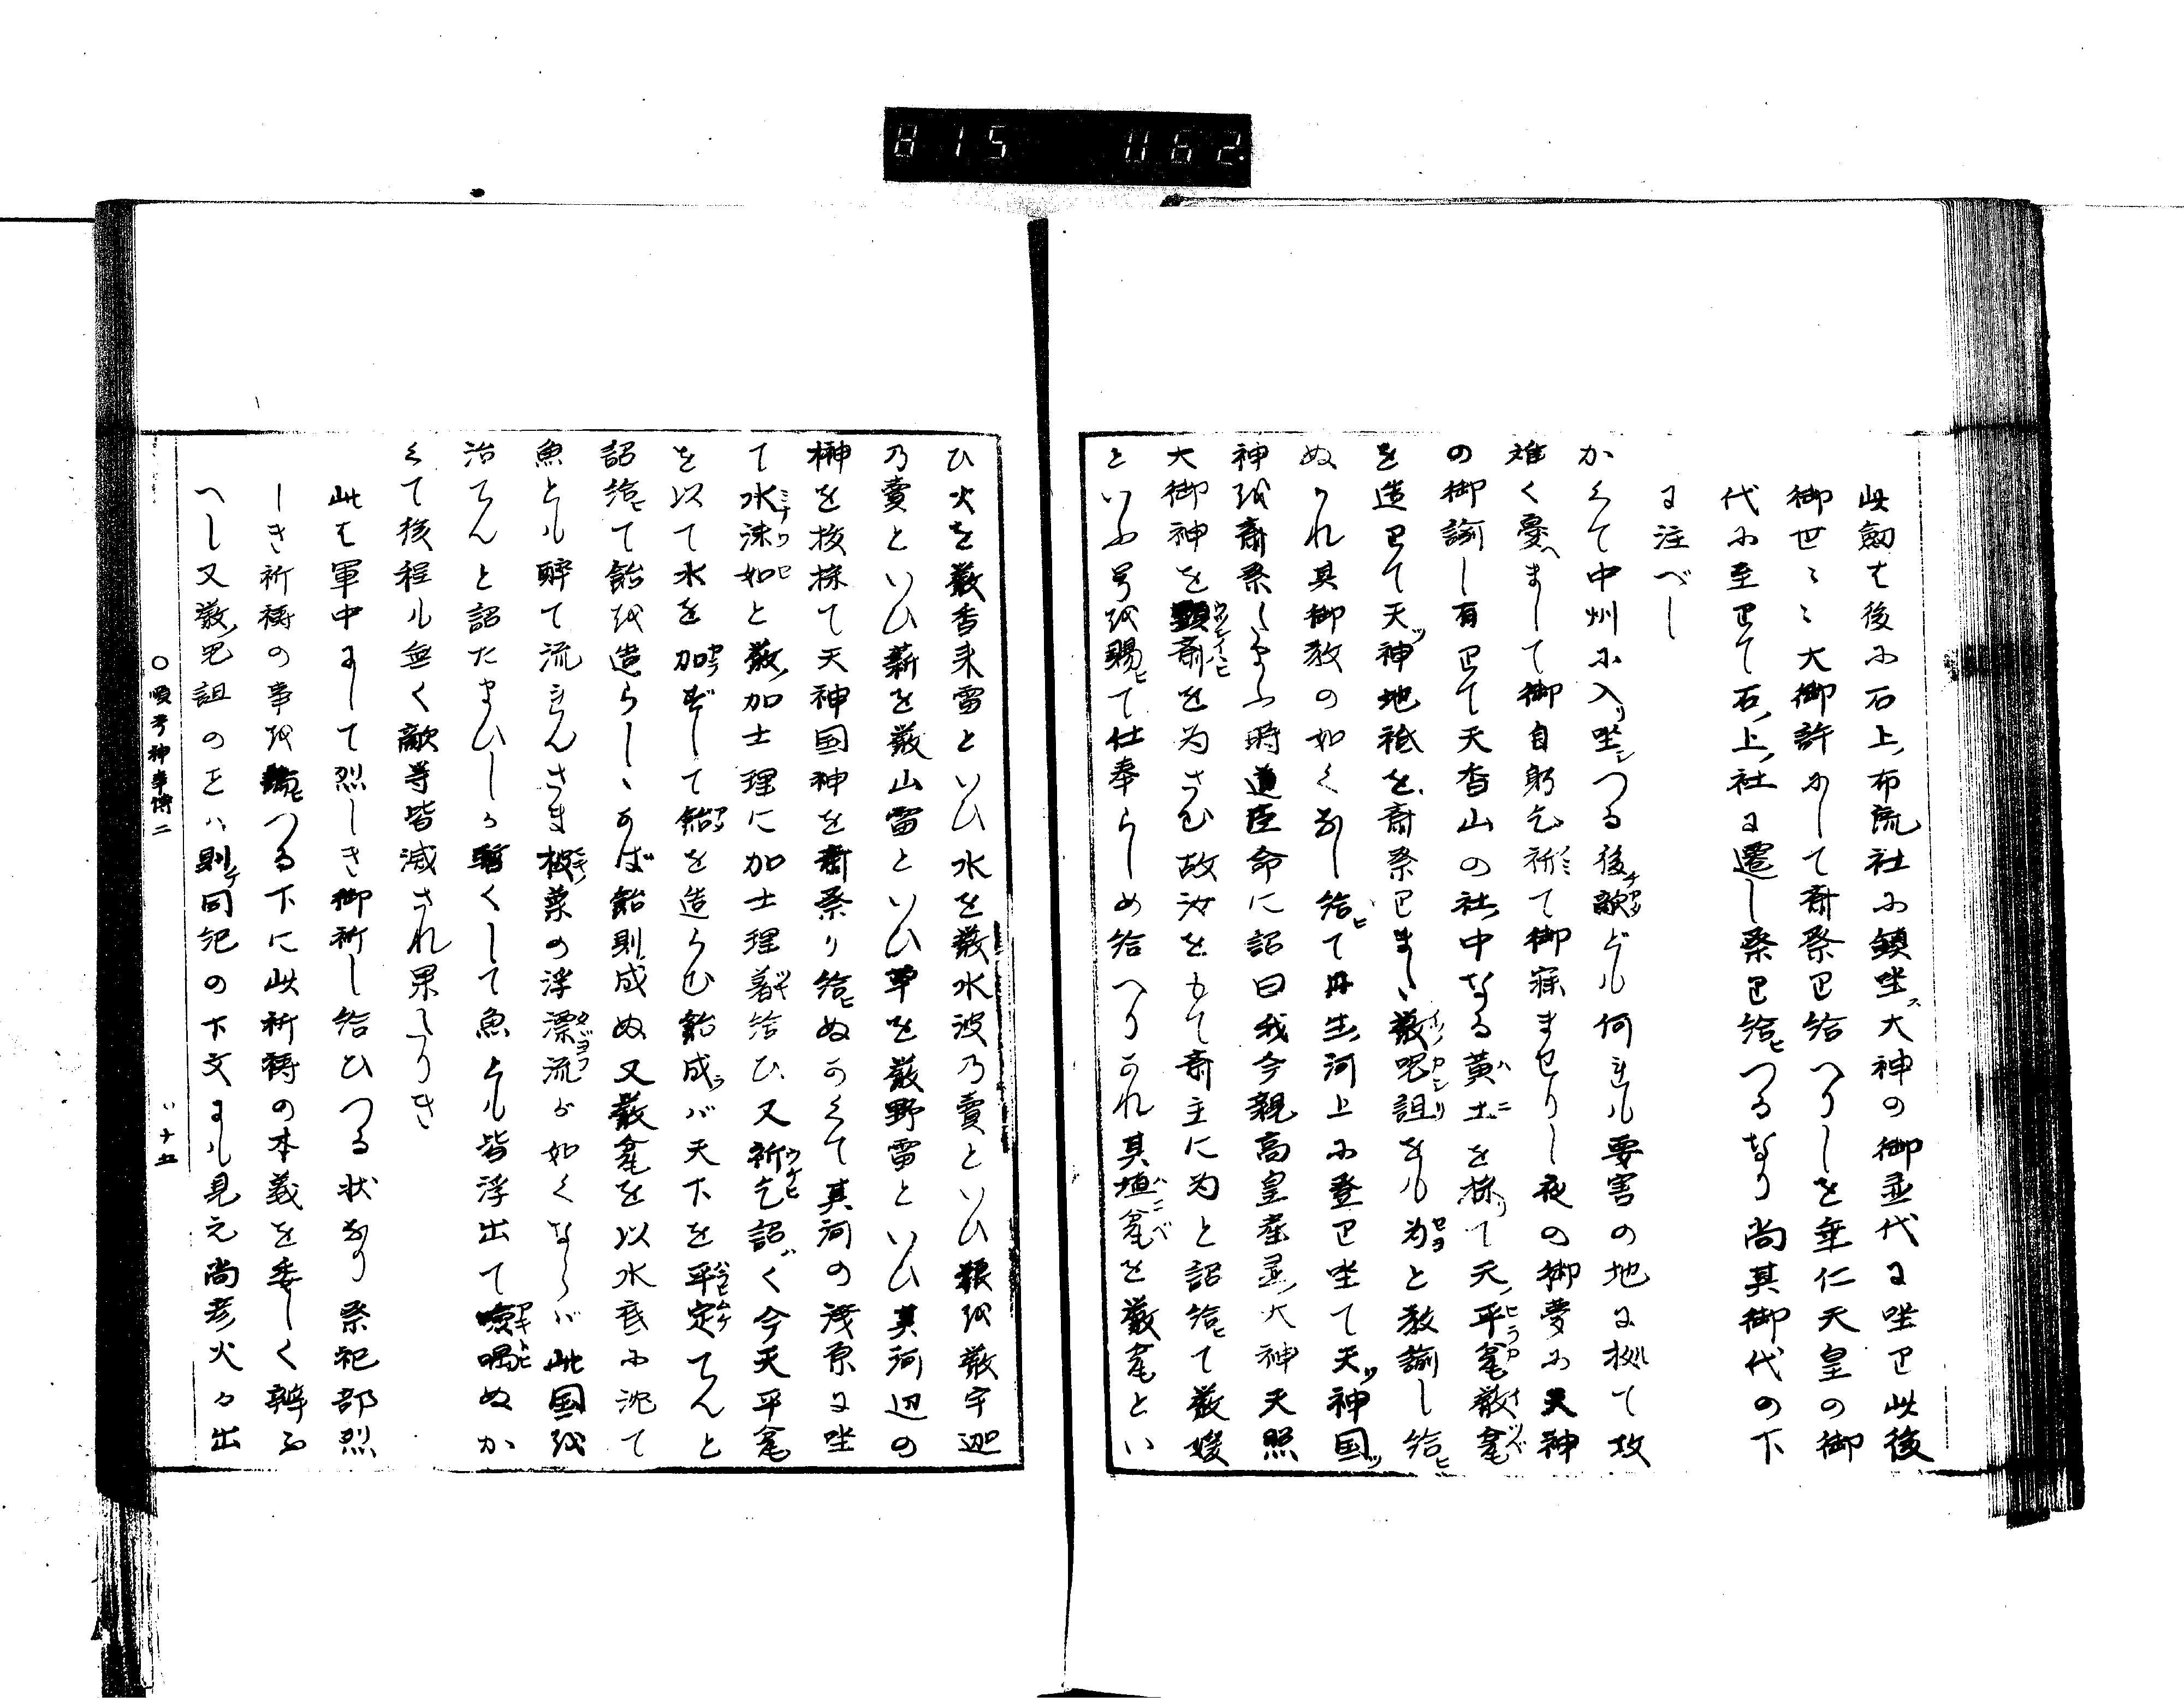 815 062
此劔は後に石上布流社に鎮坐ス大神の御霊代に坐て此後
御世々々大御許にして斎祭り給へりしを垂仁天皇の御
代に至りて石ノ上ノ社に遷し祭り給ヒつるなり尚其御代の下
に注べし
かくて中州に入リ坐シつる後チ敵アタども何れも要害の地に拠て攻
難く憂へまして御自躬乞祈ミて御寐ませりし夜の御夢に天神
の御諭し有りて天香山の社ノ中なる黄土ハニを採リて天ノ平瓮ヒラカ厳瓮イツベ
を造りて天ツ神地祇を斎祭りまし厳呪詛イツノカシリをも為セヨと教諭し給ヒ
ぬかれ其御教の如くなし給ヒて丹生ノ河上に登り坐て天ツ神国ツ
神を斎祭したまふ時道臣命に詔曰我今親高皇産霊ノ大神天照
大御神を顕斎ウツシイハヒを為さむ故汝をもて斎主に為と詔給ヒて厳媛
といふ号を賜ヒて仕奉らしめ給へりかれ其埴瓮ハニベを厳瓮とい
ひ火を厳香来雷といひ水を厳水波乃賣といひ粮を厳宇迦
乃賣といひ薪を厳山雷といひ草を厳野雷といひ其河辺の
榊を抜採て天神国神を斎祭り給ヒぬかくて其河の浅原に坐
て水沫ミナワ如と厳ノ加士理に加士理着給ひ又祈乞ウケヒ詔はく今天平瓮
を以て水を加ずして飴アメを造らむ飴成ラバ天下を平定ハラヒムケてんと
詔給ヒて飴を造らししかば飴則成ぬ又厳瓮を以水底に沈て
魚とも酔て流れんさま柀マキノ葉の浮漂タヾヨフ流が如くならバ此国を
治てんと詔たまひしに暫くして魚とも皆浮出て噞喁アギトヒぬか
くて後程も無く敵等皆滅され果たりき
此は軍中にして烈しき御祈し給ひつる状なり祭祀部烈
しき祈祷の事をつる下に此祈祷の本義を委しく辨ふ
へし又厳ノ呪詛のことハ則チ同紀の下文にも見え尚彦火々出
○順考神事傳二
十五